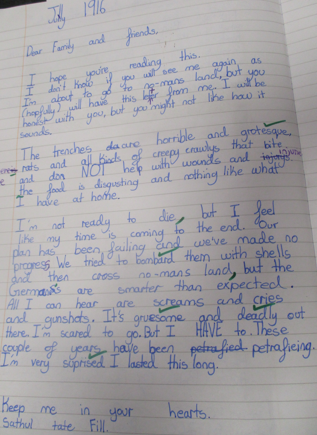 July 1916
Dear Family and friends,
I hope you're reading this.
I don't know if you will see me again, as
I'm about to go to no-mans land, but you
(hopefully) will have this from me. I will be
honest with you, but you might not like how it
sounds.
The trenches are horrible and grotesque,
rats and all kinds of creepy crawlys that bite
and do NOT help with wounds and
the food is disgusting and nothing like what
I have at home.
I'm not ready to die, but I feel
like my time is coming to the end. Our
plan has been failing and we've made no
progress. We tried to bombard them with shells
and then cross no-mans land, but the
Germans are smarter than expected.
All I can hear are screams and cries
and gunshots. It's gruesome and deadly out
there. I'm scared to go. But I HAVE to. These
couple of years have been petrafied petrafieing.
I'm very suprised I lasted this long.
Keep me in your hearts.
Sathul tate Fill.